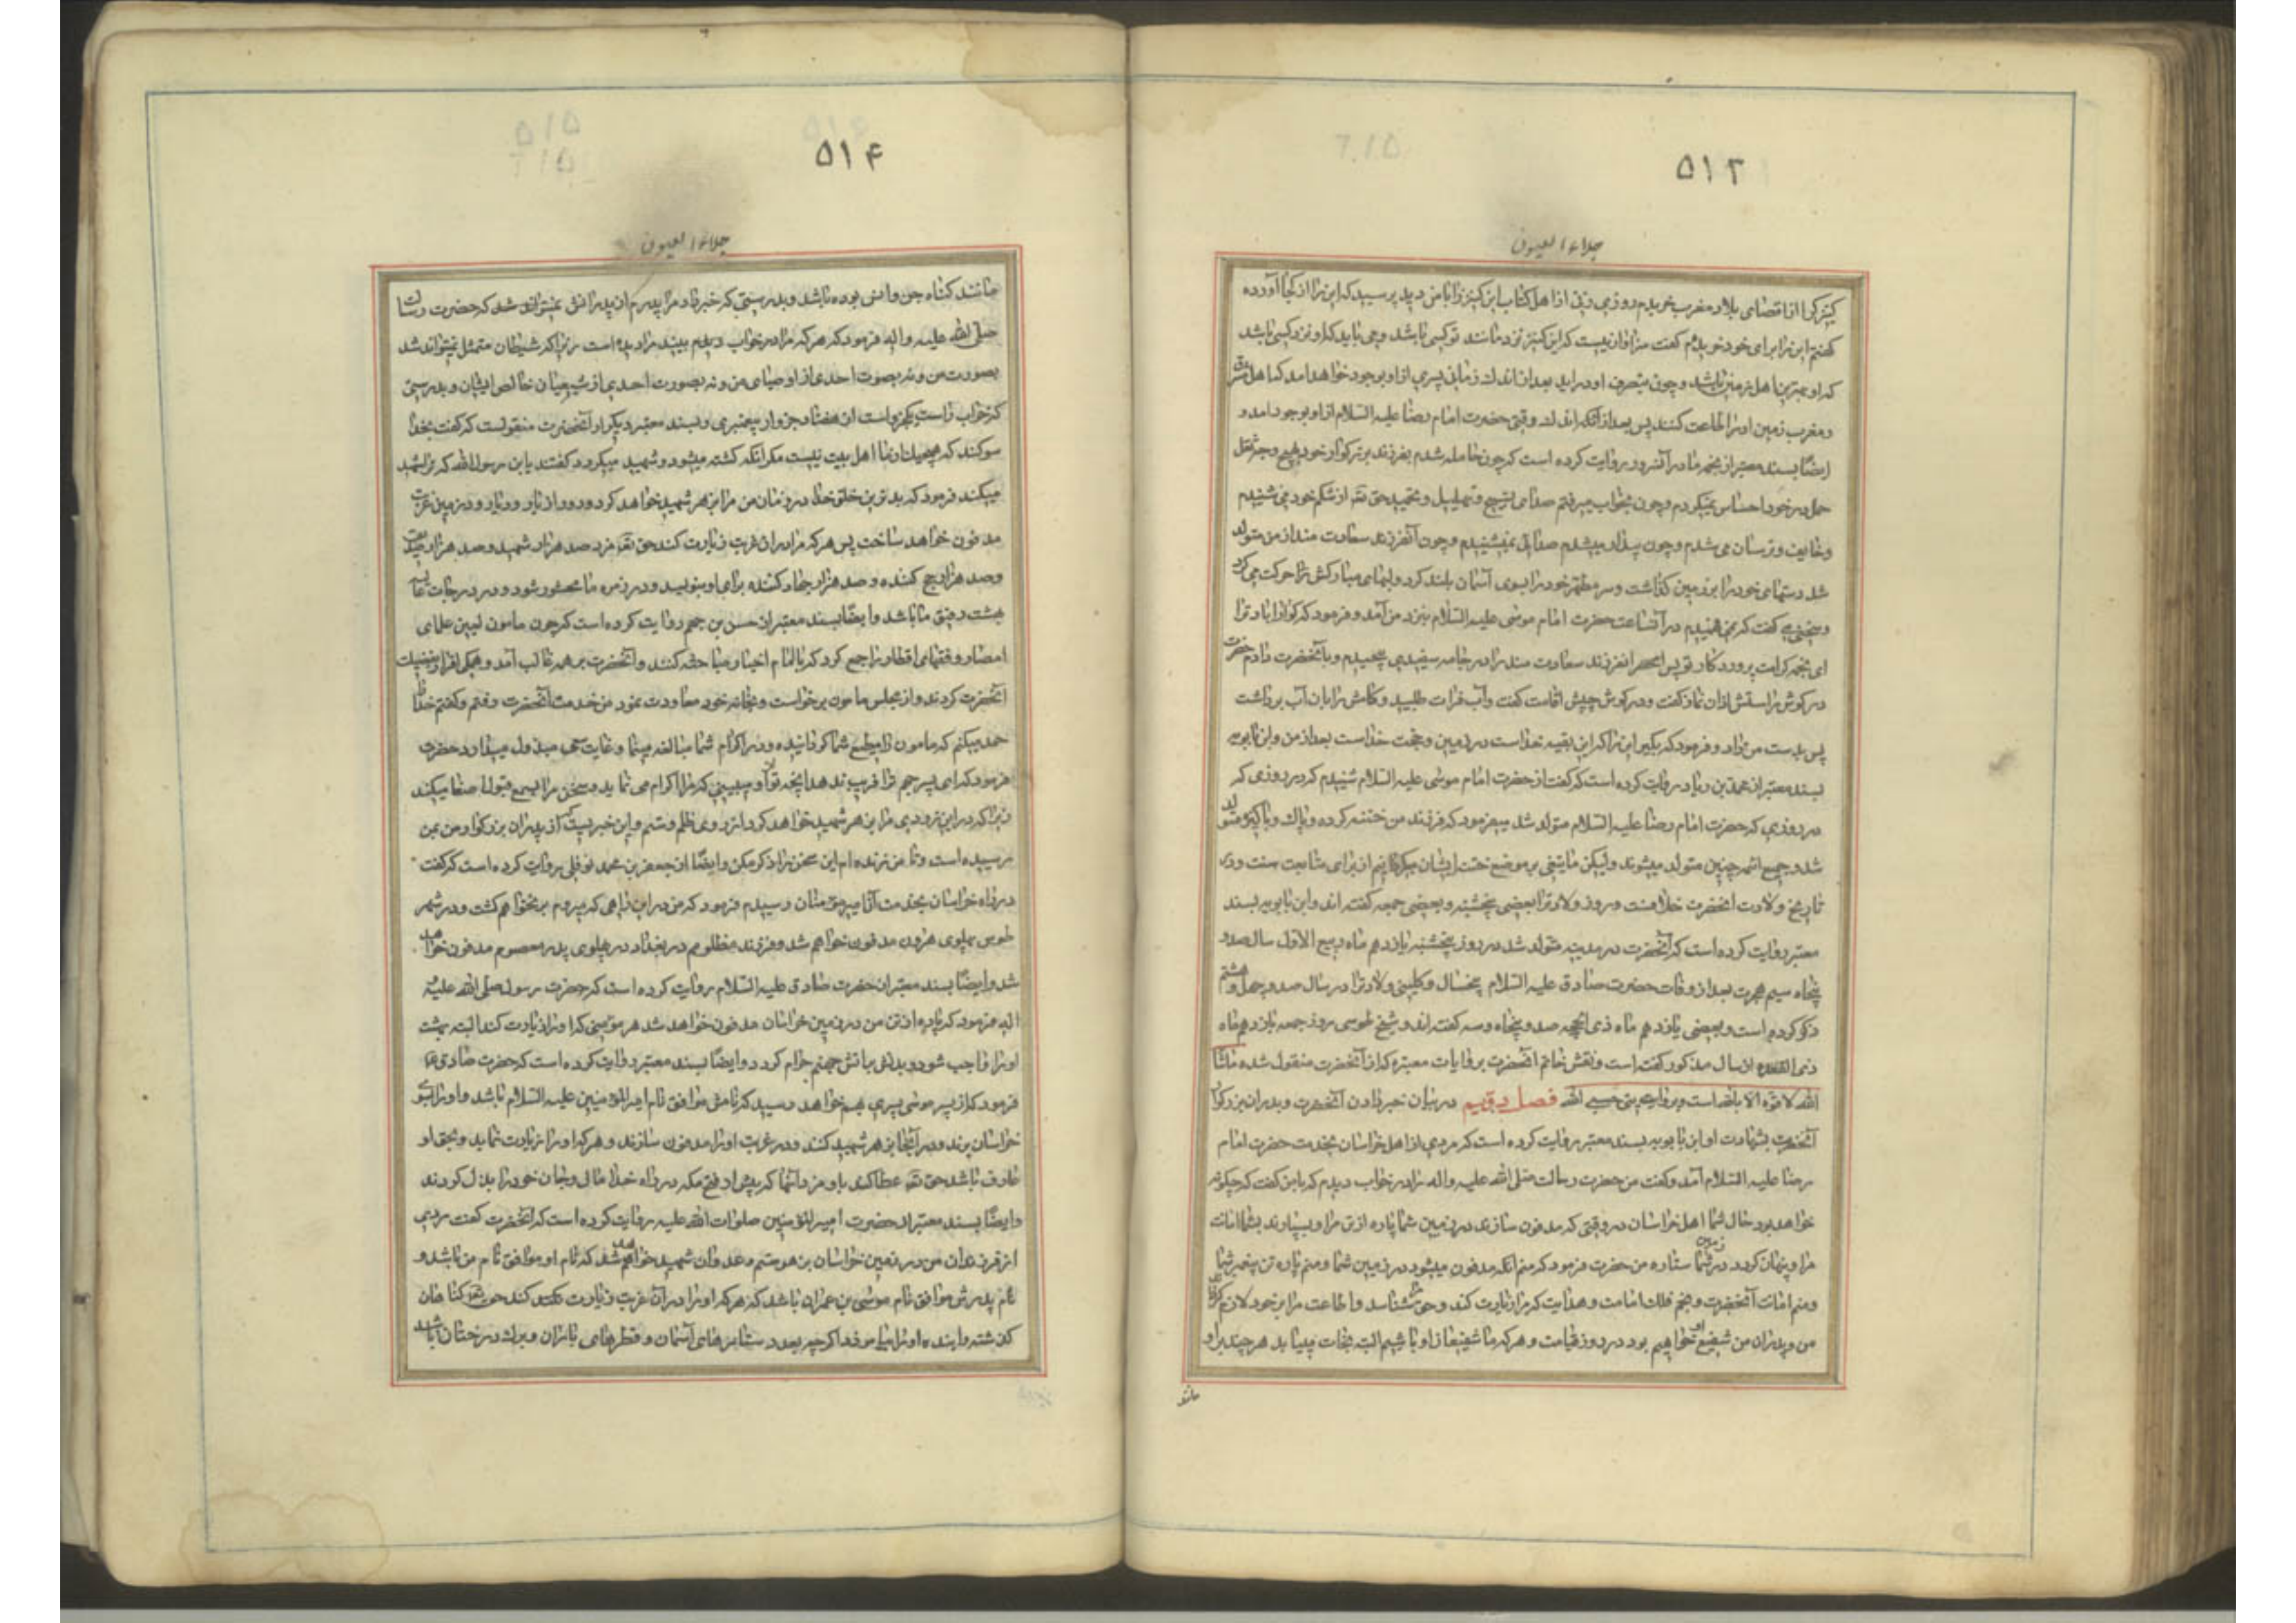 ۵۱۳
جلاء العیون
کنیزکی از اقصای بلاد مغرب خریدم روزی زنی از اهل کتاب این کنیز را با من دید پرسید که این را از کجا آورده
گفتم این را برای خود خریدم گفت سزاوار نیست که این کنیز نزد مانند تو کسی باشد و می باید که او نزد کسی باشد
که او بهترین اهل زمین باشد و چون بتصرف او در اید بعد از اندک زمانی پسری از او بوجود خواهد امد که اهل مشرق
و مغرب زمین او را اطاعت کنند پس بعد از اندک وقتی حضرت امام رضا علیه السلام از او بوجود امد و
ایضا بسند معتبر از نجمه مادر آنسرور روایت کرده است که چون حامله شدم بفرزند بزرکوار خود بهیچ وجه ثقل
حمل در خود احساس نمیکردم و چون بخواب میرفتم صدای تسبیح و تهلیل و تمجید حق تعه از شکم خود می شنیدم
و خایف و ترسان می شدم و چون بیدار میشدم صدائی نمیشنیدم و چون آنفرزند سعادتمند از من متولد
شد دستهای خود را بر زمین کذاشت و سر مطهر خود را بسوی آسمان بلند کرد و لبهای مبارکش را حرکت می کرد
و سخنی می کفت که نمی فهمیدم در آنساعت حضرت امام موسی علیه السلام بنزد من آمد و فرمود که کوارا باد ترا
ای نجمه کرامت پروردکار تو پس آنفرزند سعادت مند را در جامه سفیدی پیچیدم و بآنحضرت دادم حضرت
در کوش راستش اذان نماز کفت و در کوش چپش اقامت کفت و آب فرات طلبید و کامش را بان آب برداشت
پس بدست من داد و فرمود که بکیر این را که این بقیه خداست در زمین و حجت خداست بعد از من و ابن بابویه
بسند معتبر از محمد بن زیاد روایت کرده است که کفت از حضرت امام موسی علیه السلام شنیدم که در روزی که
در روزی که حضرت امام رضا علیه السلام متولد شد میفرمود که فرزند من ختنه کرده و پاک و پاکیزه متولد
شد و جمیع ائمه چنین متولد میشوند ولیکن ما تیغی بر موضع ختنه ایشان میکردانیم از برای متابعت سنت و در
تاریخ ولادت انحضرت خلافست و روز ولادت را بعضی پنجشنبه و بعضی جمعه کفته اند و ابن بابویه بسند
معتبر روایت کرده است که آنحضرت در مدینه متولد شد در روز پنجشنبه یازدهم ماه ربیع الاول سال صد و
پنجاه سیم هجرت بعد از وفات حضرت صادق علیه السلام پنجسال و کلینی ولادت را در سال صد و چهل و هشتم
ذکر کرده است و بعضی یازدهم ماه ذی الحجه صد و پنجاه و سه کفته اند و شیخ طوسی روز جمعه یازدهم ماه
ذی القعده از سال مذکور کفته است و نقش خاتم آنحضرت بروایات معتبره که از آنحضرت منقول شده ماشا
الله لا قوة الا بالله است و بروایتی حسبی الله فصل دویم در بیان خبر دادن آنحضرت و پدران بزرکوار
آنحضرت بشهادت او ابن بابویه بسند معتبر روایت کرده است که مردی از اهل خراسان بخدمت حضرت امام
رضا علیه السلام آمد و کفت من حضرت رسالت صلی الله علیه واله را در خواب دیدم که بامن کفت که چکونه
خواهد بود حال شما اهل خراسان در وقتی که مدفون سازند در زمین شما پاره از تن مرا و بسپارند بشما امانت
مرا و پنهان کردد در زمین شما ستاره من حضرت فرمود که منم آنکه مدفون میشود در زمین شما و منم پاره تن پیغمبر شما
و منم امانت آنحضرت و نجم فلک امامت و هدایت که مرا زیارت کند و حق مرا شناسد و اطاعت مرا بر خود لازم
من و پدران من شفیع او خواهیم بود در روز قیامت و هر که ما شفیعان او باشیم البته نجات مییابد هر چند بر او
مانند
۵۱۴
جلاء العیون
مانند کناه جن و انس بوده باشد و بدرستی که خبر داد مرا پدرم از پدرانش که حضرت رسالت
صلی الله علیه و اله فرمود که هر که مرا در خواب ببیند مرا دیده است زیرا که شیطان متمثل نمیتواند شد
بصورت من و نه بصوت احدی از اوصیای من و نه بصورت احدی از شیعیان خالص ایشان و بدرستی
که خواب راست یکجزو است از هفتاد جزو از پیغمبری و بسند معتبر دیکر از آنحضرت منقولست که کفت بخدا
سوکند که هیچیک از ما اهل بیت نیست مکر انکه کشته میشود و شهید میکردد کفتند یابن رسول الله که ترا شهید
میکند فرمود که بدترین خلق خدا در زمان من مرا بزهر شهید خواهد کرد و دور از یار و دیار و در زمین غربت
مدفون خواهد ساخت پس هر که مرا در ان غربت زیارت کند حق تعه مزد صد هزار شهید و صد هزار صدیق
و صد هزار حج کننده و صد هزار جهاد کننده برای او بنویسد و در زمره ما محشور شود و در درجات عالیه
بهشت رفیق ما باشد و ایضا بسند معتبر از حسن بن جهم روایت کرده است که چون مامون لعین علمای
امصار و فقهای اقطار را جمع کرد که با امام اخیار مباحثه کنند و آنحضرت بر همه غالب آمد و همکی اقرار بفضیلت
آنحضرت کردند و از مجلس مامون برخواست و بخانه خود معاودت نمود من خدمت آنحضرت رفتم و کفتم خدا را
حمد میکنم که مامون را مطیع شما کردانیده و در اکرام شما مبالغه مینماید و غایت سعی مبذول میدارد حضرت
فرمود که ای پسر جهم ترا فریب ندهد انچه از او میبینی که مرا اکرام می نماید و سخن مرا بسمع قبول اصغا میکند
زیرا که در این زودی مرا بزهر شهید خواهد کرد از روی ظلم و ستم و این خبریست که از پدران بزرکوار من بمن
رسیده است و تا من زنده ام این سخن را ذکر مکن و ایضا از جعفر بن محمد نوفلی روایت کرده است که کفت
در راه خراسان بخدمت رسیدم فرمود که من در این راهی که میروم بر نخواهم کشت و در شهر
طوس بپهلوی هرون مدفون خواهم شد و فرزند مظلومم در بغداد در پهلوی پدر معصوم مدفون خواهد
شد و ایضا بسند معتبر از حضرت صادق علیه السلام روایت کرده است که حضرت رسول صلی الله علیه و
اله فرمود که پاره از تن من در زمین خراسان مدفون خواهد شد هر مؤمنی که او را زیارت کند البته بهشت
او را واجب شود و بدنش بر آتش جهنم حرام کردد و ایضا بسند معتبر روایت کرده است که حضرت صادق ع
فرمود که از پسر موسی پسری بهم خواهد رسید که نامش موافق نام امیر المؤمنین علیه السلام باشد و او را بسوی
خراسان برند و در آنجا بزهر شهید کنند و در غربت او را مدفون سازند و هر که او را زیارت نماید و بحق او
عارف باشد حق تعه عطا کند باو مزد آنها که پیش از فتح مکه در راه خدا مال و جان خود را بذل کردند
و ایضا بسند معتبر از حضرت امیر المؤمنین صلوات الله علیه روایت کرده است که آنحضرت کفت مردی
از فرزندان من در زمین خراسان بزهر ستم و عدوان شهید خواهد شد که نام او موافق نام من باشد و
نام پدرش موافق نام موسی بن عمران باشد که هر که او را در آن غربت زیارت کند حق تعه کناهان
کذشته و اینده او را بیامرزد اکرچه بعدد ستارهای آسمان و قطرهای باران و برک درختان باشد